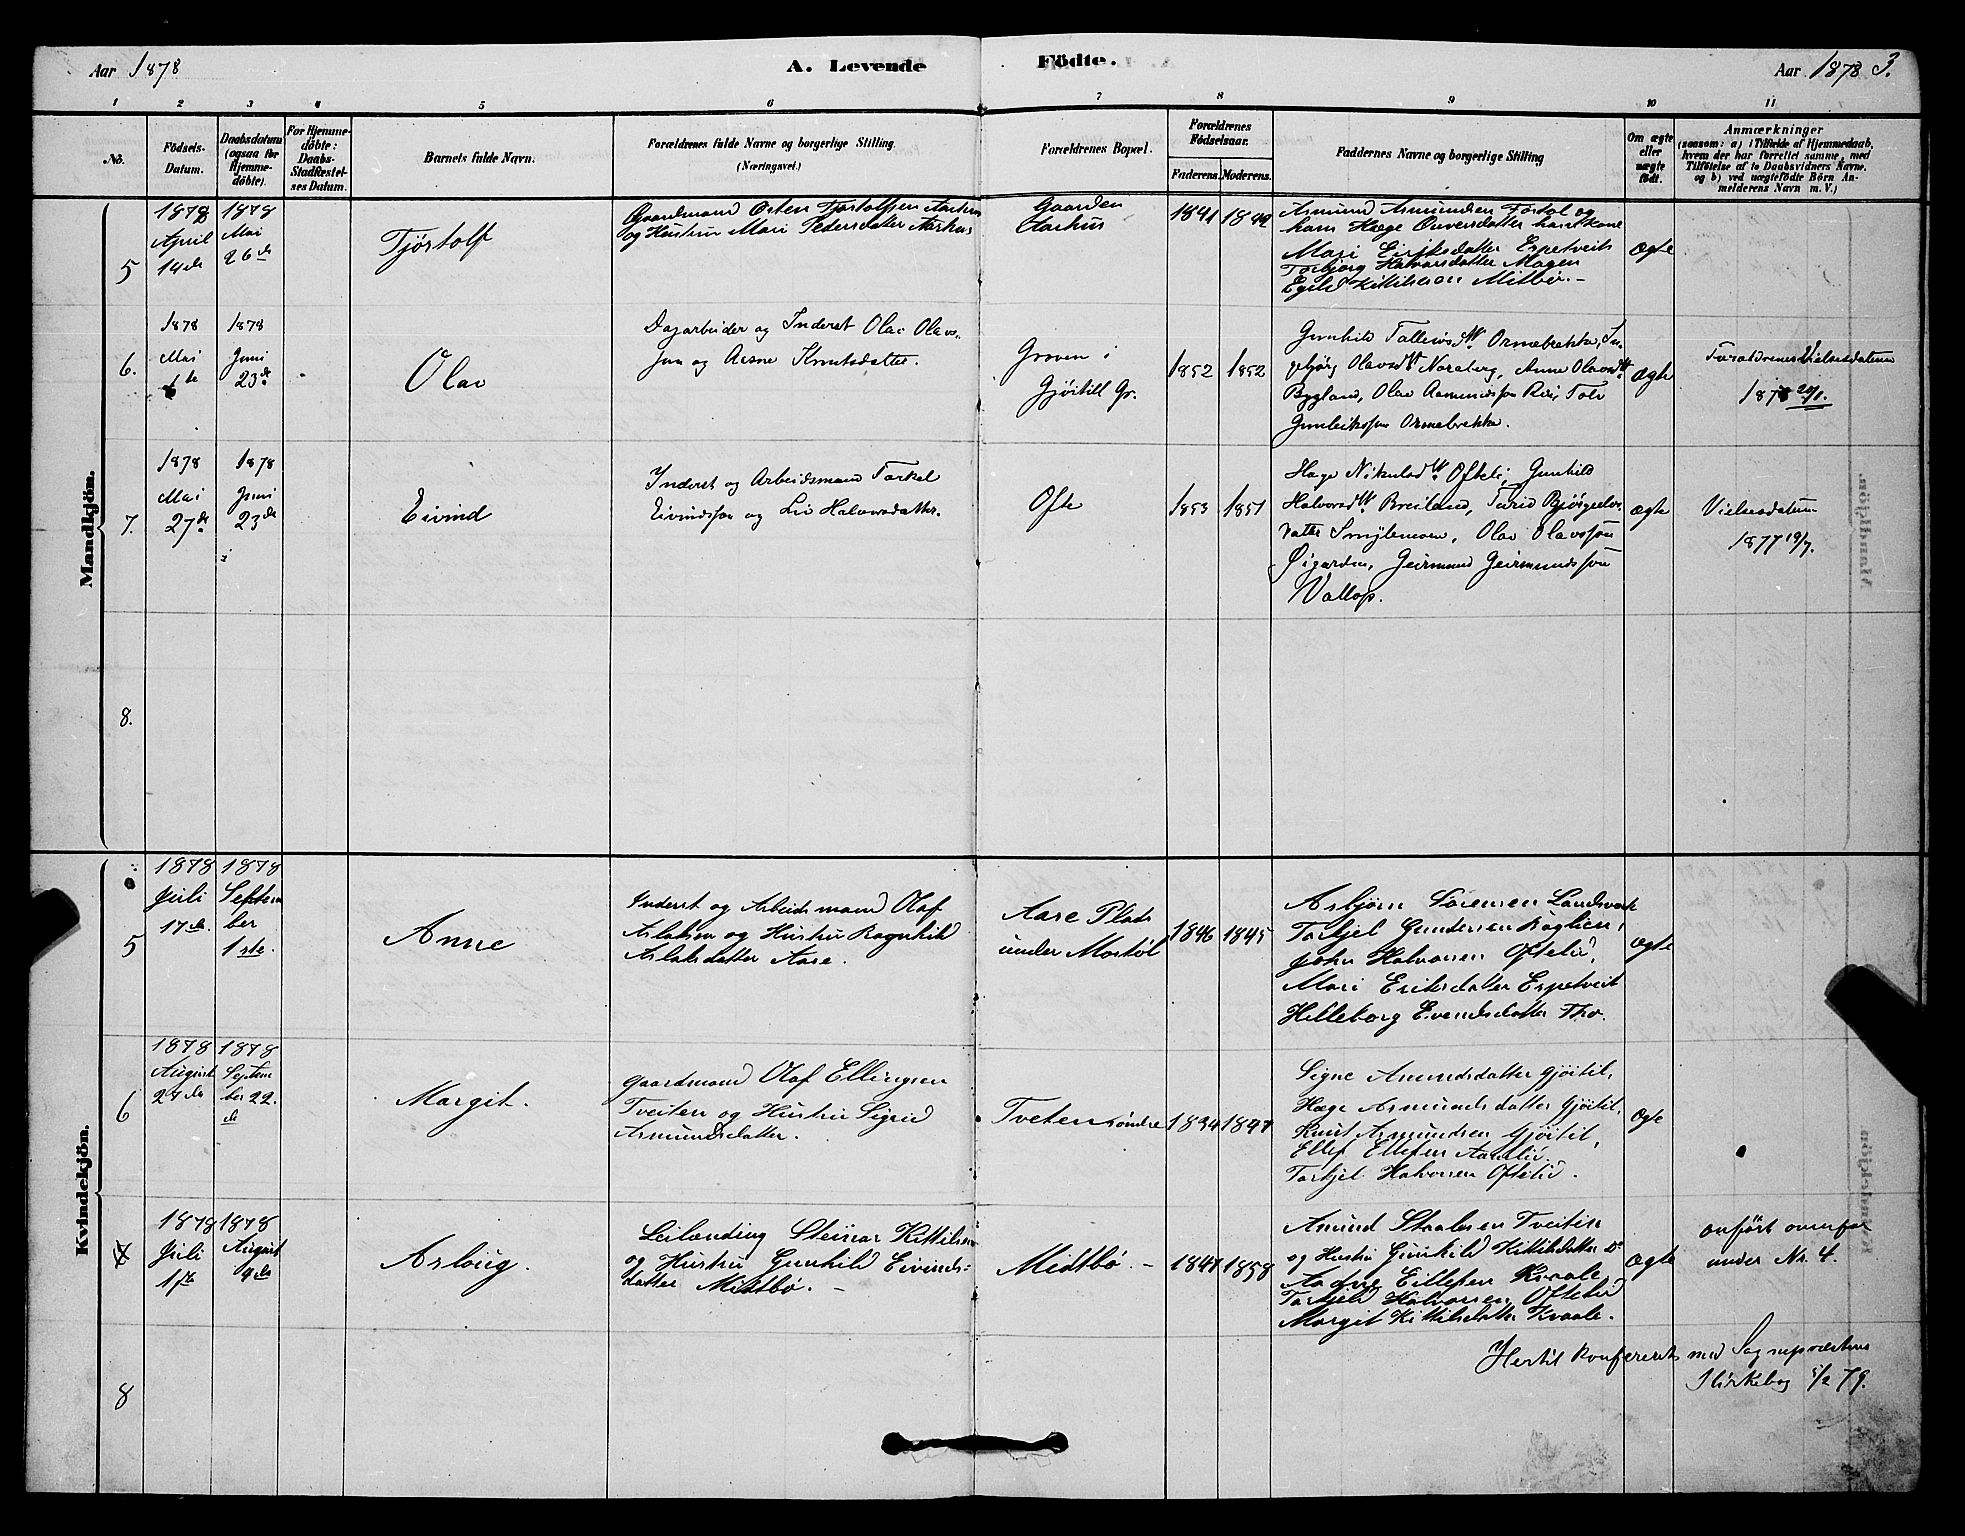 Aar 1878
A. Levende Födte.
Aar 1878 3.
1 2 3 4 5 6 7 8 9 10 11
No.
Födsels-
Datum.
Daabsdatum
(ogsaa for
Hjemme-
döbte).
For Hjemme-
döbte:
Daabs-
Stadfæstel-
ses Datum.
Barnets fulde Navn.
Forældrenes fulde Navne og borgerlige Stilling
(Næringsvei.)
Forældrenes Bopæl.
Forældrenes
Födselsaar.
Faderens. Moderens.
Faddernes Navne og borgerlige Stilling
Om ægte
eller
uægte
født.
Anmærkninger
(saasom: a) i Tilfælde af Hjemmedaab,
hvem der har forrettet samme, med
Tilföielse af to Daabsvidners Navne.
og b) ved uægtefödte Börn An-
melderens Navn m. V.)
Mandkjön.
5
1878
April
14de
1878
Mai
26de
Tjøstolf
Gaardmand Østen Tjøstolfsen Aarhus
og Hustru Mari Pedersdatter Aarhus
Gaarden
Aarhus
1841
Asmund Asmundsen
Mari Eriksdatter Espetveit
Torbjørg Halvorsdatter Mogen
Kittilsen Mitbø.-
Ægte
6.
1878
Mai
1878
Juni
23de
Olav
Dagarbeider og Inderst Olav Olavs-
søn og Aasne Knutsdatter.
Groven i
1852
1852
Gunhild
Ormebrekke, In-
gebjørg Olavsdtr Anne Olavsdtr
Bygland, Olav Aamundssøn
Gunleikssøn Ormebrekke.
Ægte
Forældrenes Vielsesdatum
7.
1878
Mai
27de
1878
Juni
23de
Eivind
Inderst og Arbeidsmand Torkel
Eivindssøn og Liv Halvorsdatter.
Ofte
1853
1851
Hæge Oftelie, Gunhild
Halvorsdtr Breiland, Turid
Olav Olavssøn
Øigarden, Geirmund Geirmundssøn
Vallop.
Ægte
Vielsesdatum
1877 19/7.
8.
Kvindekjön.
5
1878
Juli
17de
1878
Septem
ber
1ste.
Anne
Inderst og Arbeidsmand Olaf
Aslaksen og Hustru Ragnhild
Aslaksdatter Aase.
Aase Plads
under Mostøl
1846
1845
Asbjørn Sørensen Landsverk
Torkjel Gundersen
John Halvorsen Oftelid,
Mari Eriksdatter Espetveit
Helleborg Evendsdatter Tho.
Ægte
6
1878
August
24de
1878
Septem
ber 22.
de
Margit.
Gaardmand Olaf Ellingsen
Tveiten og Hustru Sigrid
Asmundsdatter.
Tveten søndre
1834
1847
Signe Asmundsdatter Gjøitil,
Hæge Asmundsdatter Gjøitil,
Knut Asmundsen Gjøitil,
Ellef Ellefsen Aamlid.
Torkjel Halvorsen Oftelid.
Ægte
7
1878
Juli
1ste
1878
August
4de
Aslaug.
Leilænding Steinar Kittilsen
og Hustru Gunhild Eivinds-
datter Midtbø. -
Midtbø. -
1847
1858
Amund Tveiten
og Hustru Gunhild Kittilsdatter Do
Aadne Eillefsen Kvaale
Torkjeld Halvorsen Oftelid
Margit Kittilsdatter Kvaale.
Ægte
anført ovenfor
under Nr. 4.
8
Hertil konfereret med Sognepræstens
Kirkebog 5/2 79.